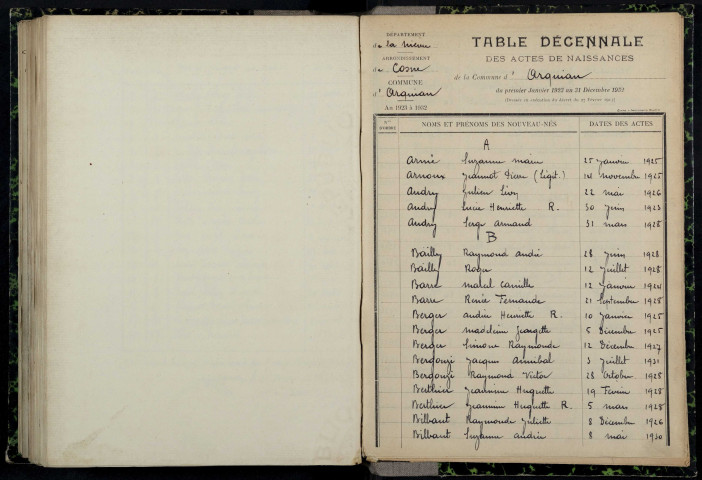 DÉPARTEMENT
de la Nièvre
ARRONDISSEMENT
de Cosne
COMMUNE
d' Arquian
An 1923 à 1932
TABLE DÉCENNALE
DES ACTES DE NAISSANCES
de la Commune d' Arquian
du premier Janvier 1923 au 31 Décembre 1932
NOMS ET PRENOMS DES NOUVEAU-NÉS DATES DES ACTES
A
Suzanne marie 25 Janvier 1925
Arnoux Jeannot (Légit.) 14 novembre 1925
Audry Julien Léon 22 mai 1926
Audry Lucie Henriette R. 30 Juin 1923
Audry Serge Armand 31 mars 1928
B
Bailly Raymond andré 28 Juin 1928
Bailly Roger 12 Juillet 1928
Barre marcel Camille 12 Janvier 1924
Barre Renée Fernande 21 Septembre 1928
Berger andrée Henriette R. 10 Janvier 1925
Berger madeleine Georgette 5 Décembre 1925
Berger Simone Raymonde 12 Décembre 1927
Bergouzi Jacques Annibal 3 Juillet 1931
Bergouzi Raymond Victor 28 Octobre 1928
Berthier Jeannine Huguette 19 Février 1928
Berthier Jeannine Huguette R. 5 mars 1928
Bilbaut Raymonde Juliette 8 Décembre 1926
Bilbaut Suzanne andrée 8 mai 1930